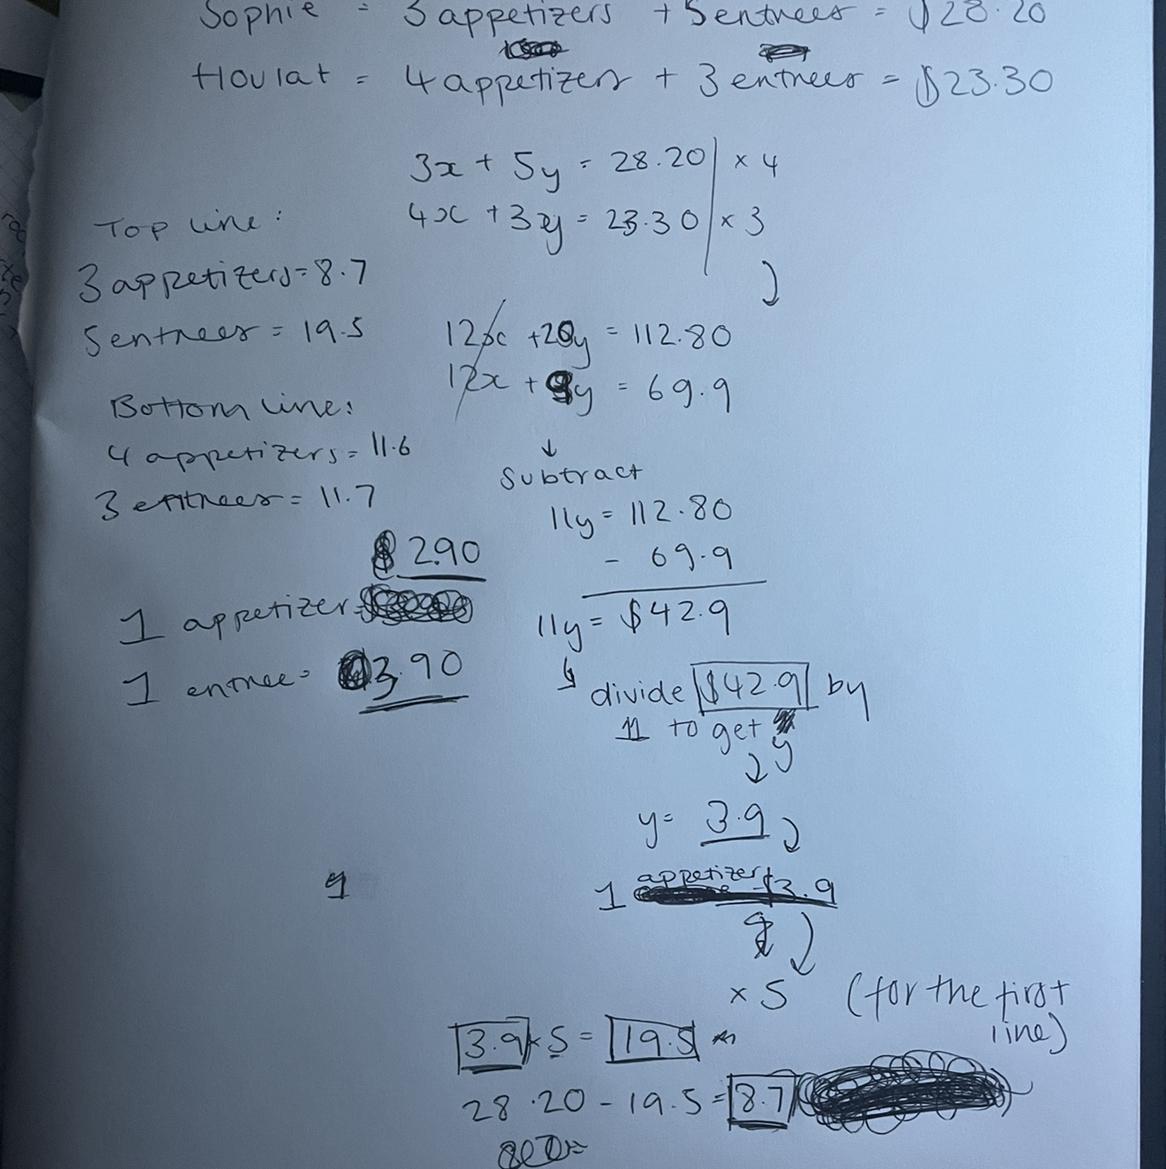 Sophie = 3 appetizers + 5 entrees = $28.20
Houlat = 4 appetizers + 3 entrees = $23.30
3x + 5y = 28.20 | × 4
4x + 3y = 23.30 | × 3
Top line:
3 appetizers = 8.7
5 entrees = 19.5
Bottom line:
4 appetizers = 11.6
3 entrees = 11.7
$2.90
1 appetizer =
1 entree = 3.90
12x + 20y = 112.80
12x + 9y = 69.9
↓
Subtract
11y = 112.80
- 69.9
11y = $42.9
↳ divide $42.9 by
11 to get y
↓
y = 3.9
1 appetizer $3.9
× 5 (for the first
line)
3.9 × 5 = 19.5
28.20 - 19.5 = 8.7
9